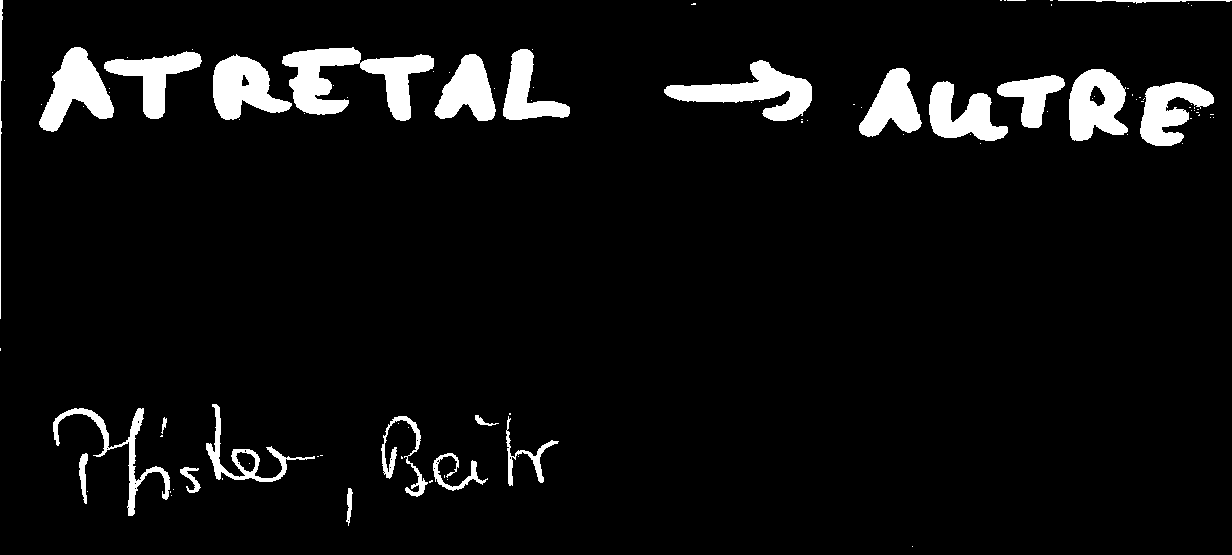 ATRETAL → AUTRE
Pfister, Beitr